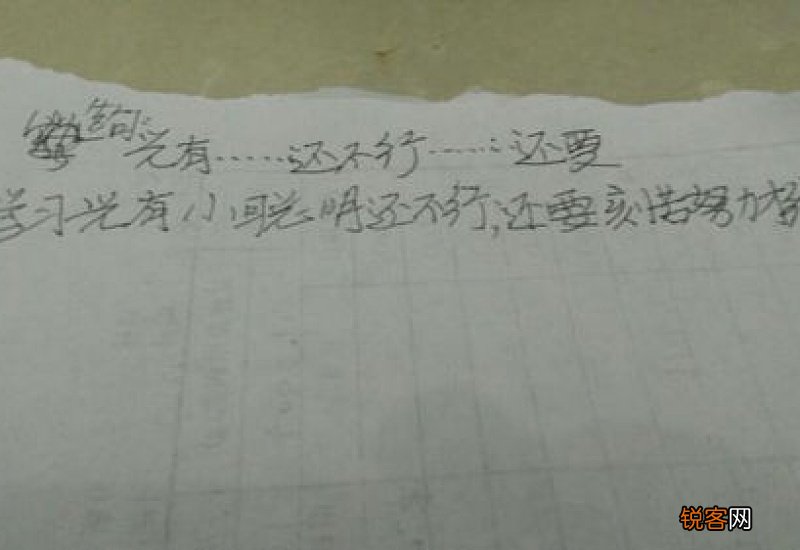 造句:光有……还不行……还要
学习光有小聪明还不行,还要刻苦努力
锐客网